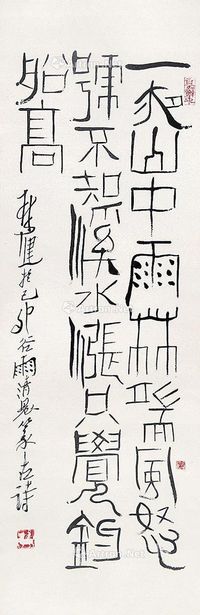 一夜山中雨林端風怒
號不知溪水漲只覺釣
船高
於己卯谷雨清晨篆古詩